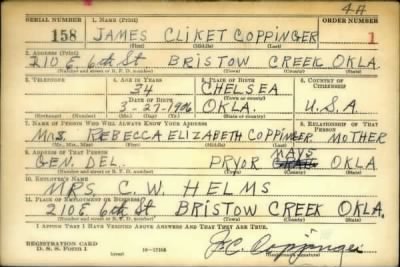 4A
SERIAL NUMBER 1. NAME (Print) ORDER NUMBER
158 JAMES CLIKET COPPINGER 1
(First) (Middle) (Last)
2. ADDRESS (Print)
210 E 6th St BRISTOW CREEK OKLA.
(Number and street or R. F. D. number) (Town) (County) (State)
3. TELEPHONE 4. AGE IN YEARS 5. PLACE OF BIRTH 6. COUNTRY OF CITIZENSHIP
34 CHELSEA
DATE OF BIRTH (Town or county)
3-27-1906 OKLA. U.S.A
(Mo.) (Day) (Yr.) (State or country)
7. NAME OF PERSON WHO WILL ALWAYS KNOW YOUR ADDRESS 8. RELATIONSHIP OF THAT PERSON
MRS. REBECCA ELIZABETH COPPINGER MOTHER
(Mr., Mrs., Miss) (First) (Middle) (Last)
9. ADDRESS OF THAT PERSON
MAYS
GEN. DEL. PRYOR OKLA
(Number and street or R. F. D. number) (Town) (County) (State)
10. EMPLOYER'S NAME
MRS. C. W. HELMS
11. PLACE OF EMPLOYMENT OR BUSINESS
210 E 6th St BRISTOW CREEK OKLA.
(Number and street or R. F. D. number) (Town) (County) (State)
I AFFIRM THAT I HAVE VERIFIED ABOVE ANSWERS AND THAT THEY ARE TRUE.
REGISTRATION CARD
D. S. S. Form 1 J C Coppinger